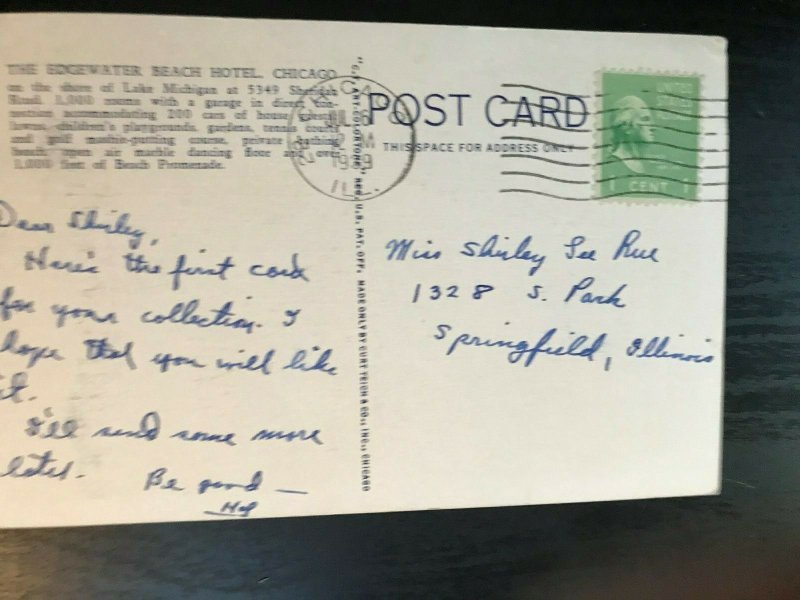 THE EDGEWATER BEACH HOTEL, CHICAGO
on the shore of Lake Michigan at 5349 Sheridan
Road. 1,000 rooms with a garage in direct con-
nection accommodating 200 cars of house guests.
children's playgrounds, gardens, tennis courts
and golf mashie-putting course, private bathing
beach, open air marble dancing floor and over
1,000 feet of Beach Promenade.
Dear Shirley,
Here's the first card
for your collection. I
hope that you will like
it.
I'll send some more
later.
Be good —
Hal
"C.T. ART-COLORTONE" REG. U.S. PAT. OFF. MADE ONLY BY CURT TEICH & CO., INC., CHICAGO
JUL
1949
ILL.
POST CARD
THIS SPACE FOR ADDRESS ONLY
UNITED
STATES
POSTAGE
1 CENT 1
Miss Shirley Lee Rue
1328 S. Park
Springfield, Illinois